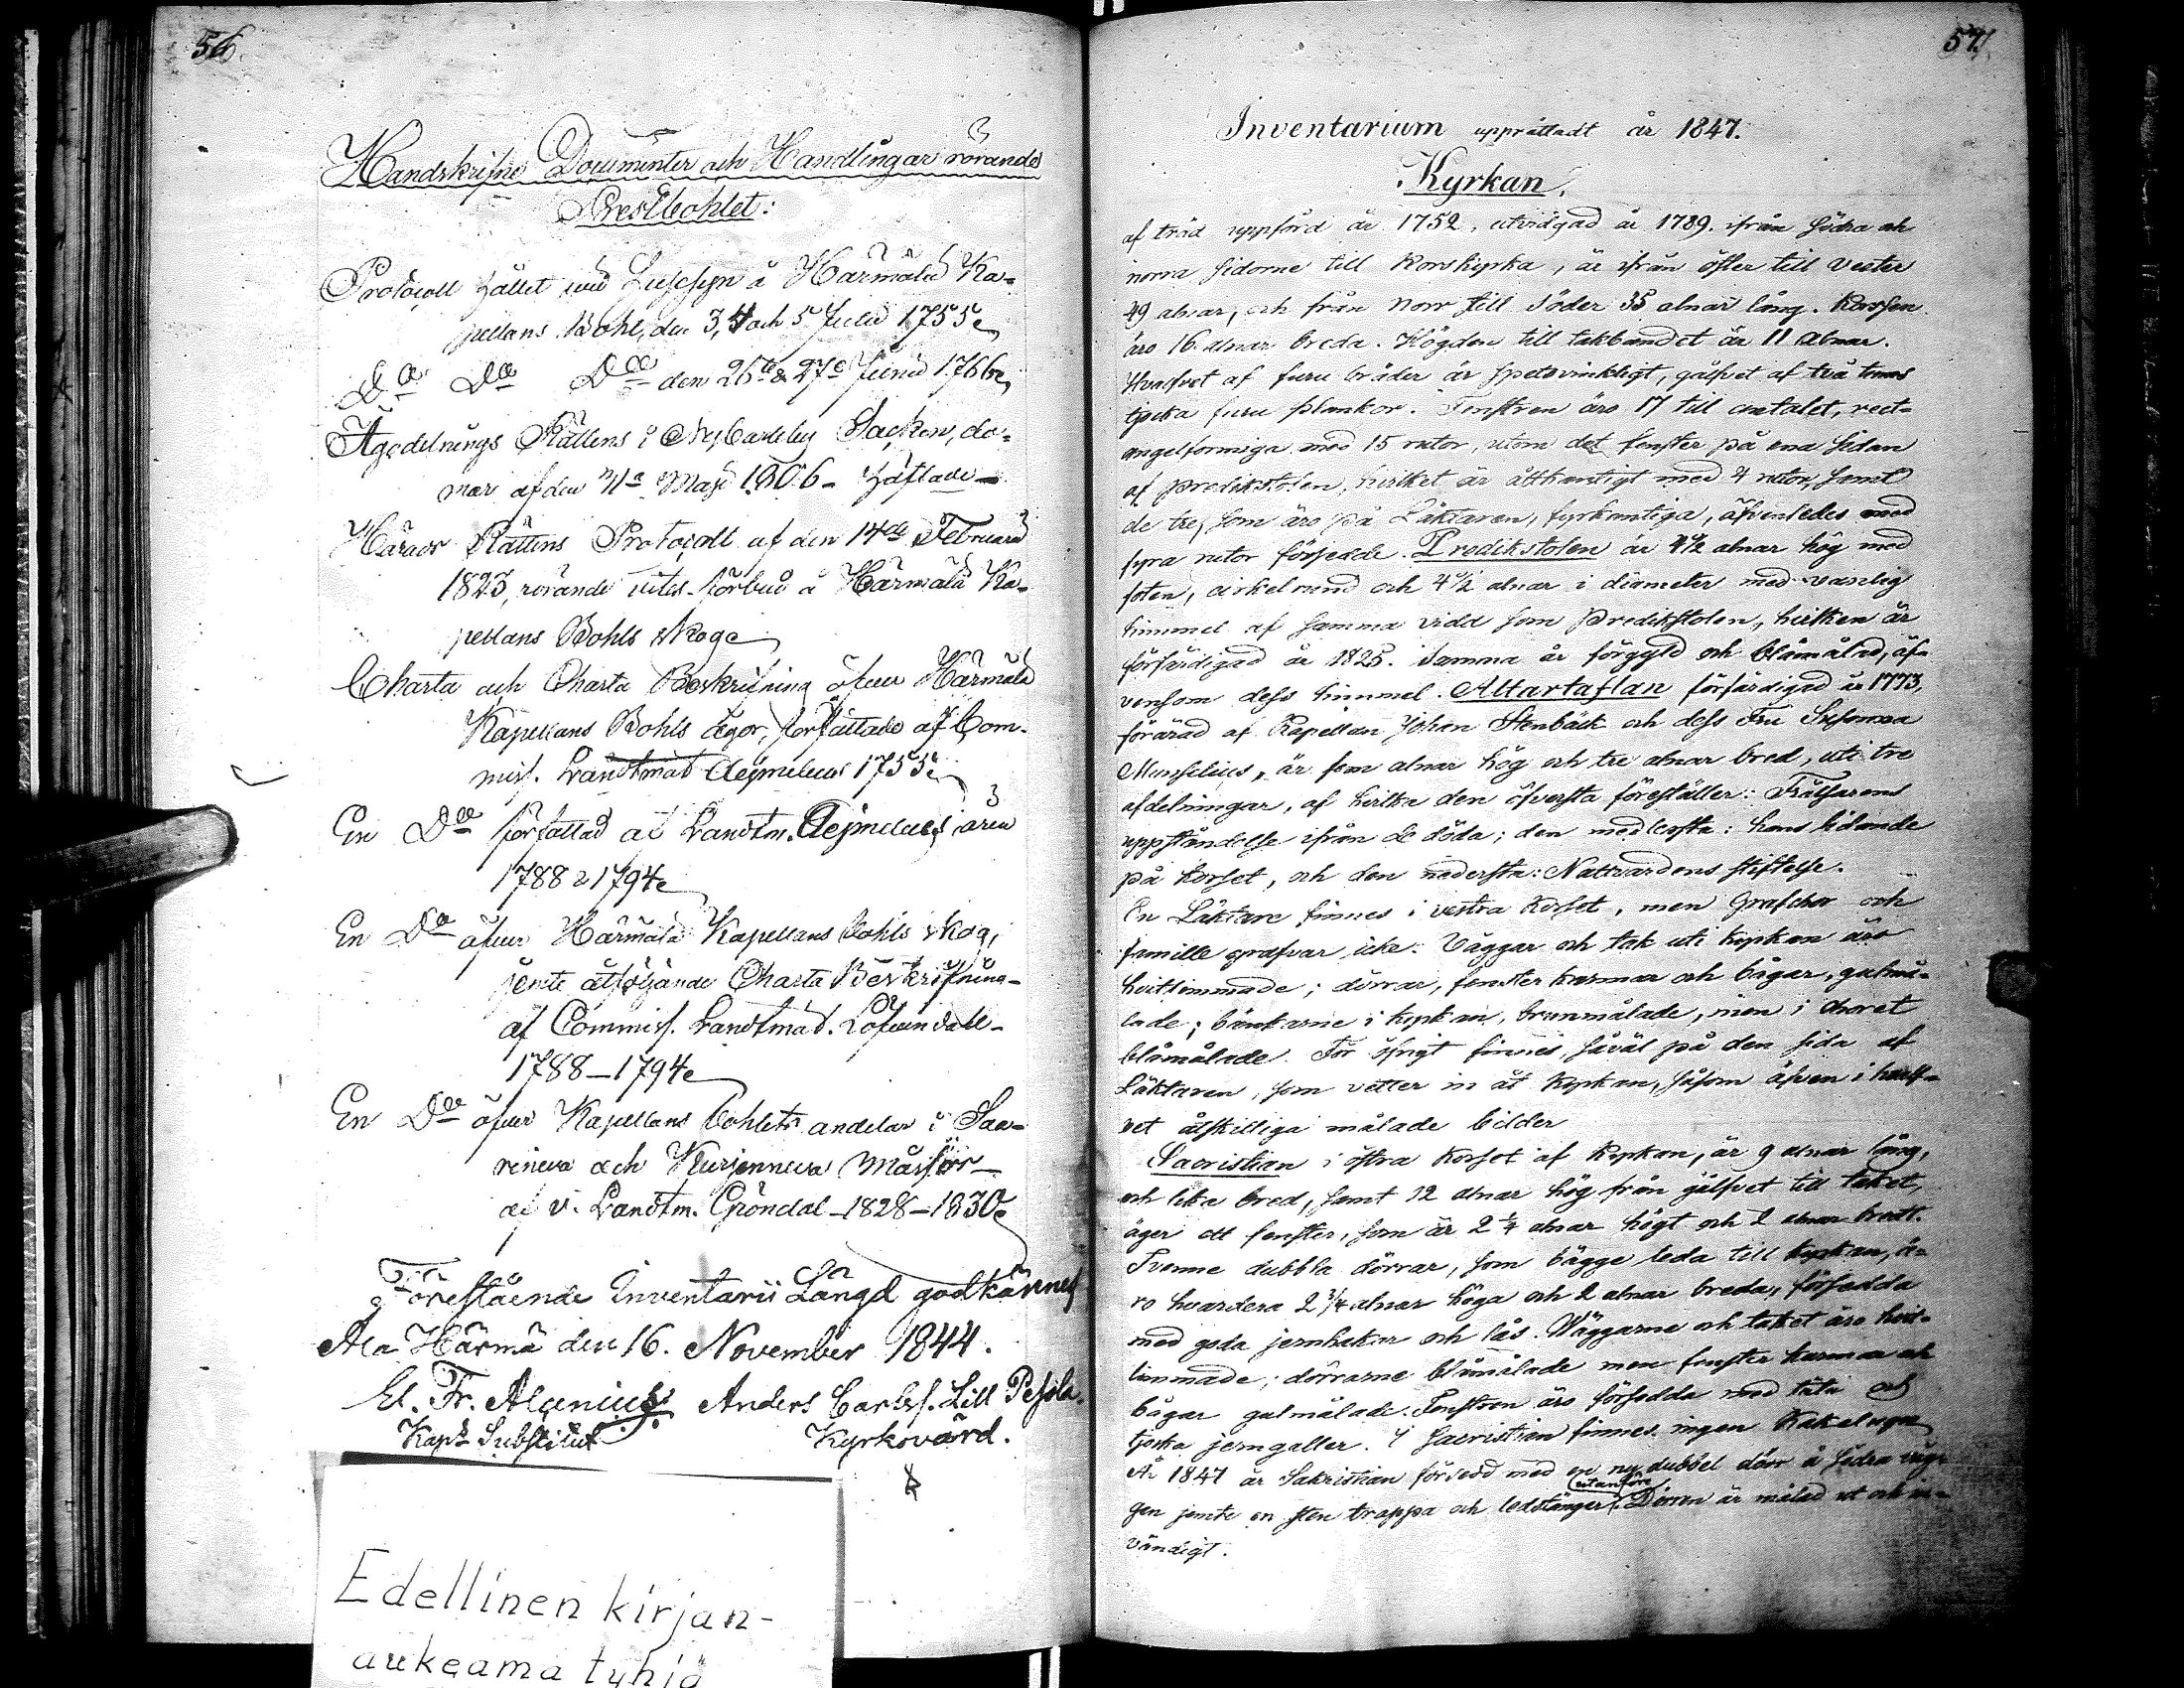 56.
Handskrifne Documenter och Handlingar rörande
Prestbohlet:
Protocoll hållet vid Husesyn å Härmälä Ka-
pellans Bohl, den 3, 4 och 5 Julii 1755.
Do Do Do den 26te & 27de Junii 1766.
Ägodelnings Rättens i Ny Carleby Socken, do-
mar af den 11te Maji 1806 - häftade -
Härads Rättens Protocoll af den 14de Februarii
1823, rörande vites-förbud å Härmälä Ka-
pellans Bohls skog.
Charta och Charta Beskrifning öfver Härmälä
Kapellans Bohls ägor, författade af Com-
miss. Landtmät. Aejmelæus 1755.
En Do författad af Landtm. Aejmelæus, åren
1788 & 1794.
En Do öfver Härmälä Kapellans Bohls skog,
jemte åtföljande Charta Beskrifning -
af Commiss. Landtmät. Löfvendahl -
1788 - 1794.
En Do öfver Kapellans Bohlets andelar i Saa-
rineva och Kurjenneva Mossor -
af v. Landtm. Gröndal - 1828 - 1830.
Förestående Inventarii Längd godkännes
Ala Härmä den 16. November 1844.
El. Fr. Alcenius Anders Carlss. Lill Pesola.
Kapls Substitut Kyrkovärd.
Edellinen kirjan-
aukeama tyhjä
57.
Inventarium upprättadt år 1847.
Kyrkan,
af träd uppförd år 1752, utvidgad år 1789. ifrån södra och
norra sidorne till Korskyrka, är ifrån öster till vester
49 alnar, och från norr till söder 35 alnar lång. Korssen
äro 16 alnar breda. Högden till takbandet är 11 alnar.
Hvalfvet af furu bräder är spetsvinkligt, gålfvet af två tums
tjocka furu plankor. Fenstren äro 17 till antalet, rect-
angelformiga med 15 rutor, utom det fenster på ena sidan
af predikstolen, hvilket är åttkantigt med 4 rutor, samt
de tre, som äro på Läktaren, fyrkantiga, äfvenledes med
fyra rutor försedde. Predikstolen är 4½ alnar hög med
foten, cirkelrund och 4½ alnar i diameter med vanlig
himmel af samma vidd som Predikstolen, hvilken är
förfärdigad år 1825. Samma är förgyld och blåmålad, äf-
vensom dess himmel. Altartaflan förfärdigad år 1773,
förärad af Kapellan Johan Stenbäck och dess Fru Susanna
Munselius, är fem alnar hög och tre alnar bred, uti tre
afdelningar, af hvilka den öfversta föreställer: Frälsarens
uppståndelse ifrån de döda; den medlersta: hans lidande
på korset, och den nedersta: Nattvardens stiftelse.
En Läktare finnes i vestra korset, men Grafchor och
famille grafvar icke. Väggar och tak uti kyrkan äro
hvitlimmade; dörrar, fenster karmar och bågar, gulmå-
lade; bänkarne i kyrkan, brunmålade, men i choret
blåmålade. För öfrigt finnes, såväl på den sida af
Läktaren, som vetter in åt kyrkan, såsom äfven i hvalf-
vet åtskilliga målade bilder
Sacristian i östra korset af kyrkan, är 9 alnar lång,
och lika bred, samt 12 alnar hög från gålfvet till taket,
äger ett fenster, som är 2¼ alnar högt och 2 alnar bredt.
Tvenne dubbla dörrar, som bägge leda till kyrkan, ä-
ro hvardera 2¾ alnar höga och 2 alnar breda, försedda
med goda jernhakar och lås. Wäggarne och taket äro hvit-
limmade; dörrarne blåmålade men fenster karmar och
bågar gulmålade. Fenstren äro försedda med täta och
tjocka jerngaller. I Sacristian finnes ingen Kakelugn
År 1847 är Sakristian försedd med en ny dubbel dörr å södra väg-
gen jemte en sten trappa och ledstänger utanföre. Dörren är målad ut och in-
vändigt.